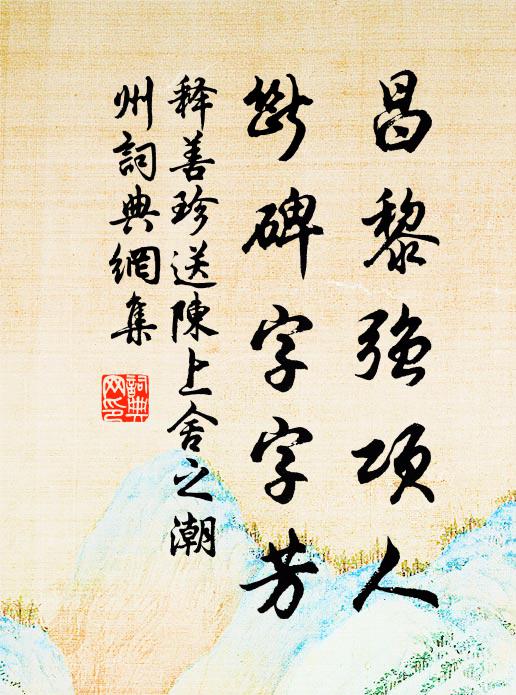 昌黎強項人
斷碑字字芳
释善珍送陳上舍之潮
州詞典網集
詞典
网印